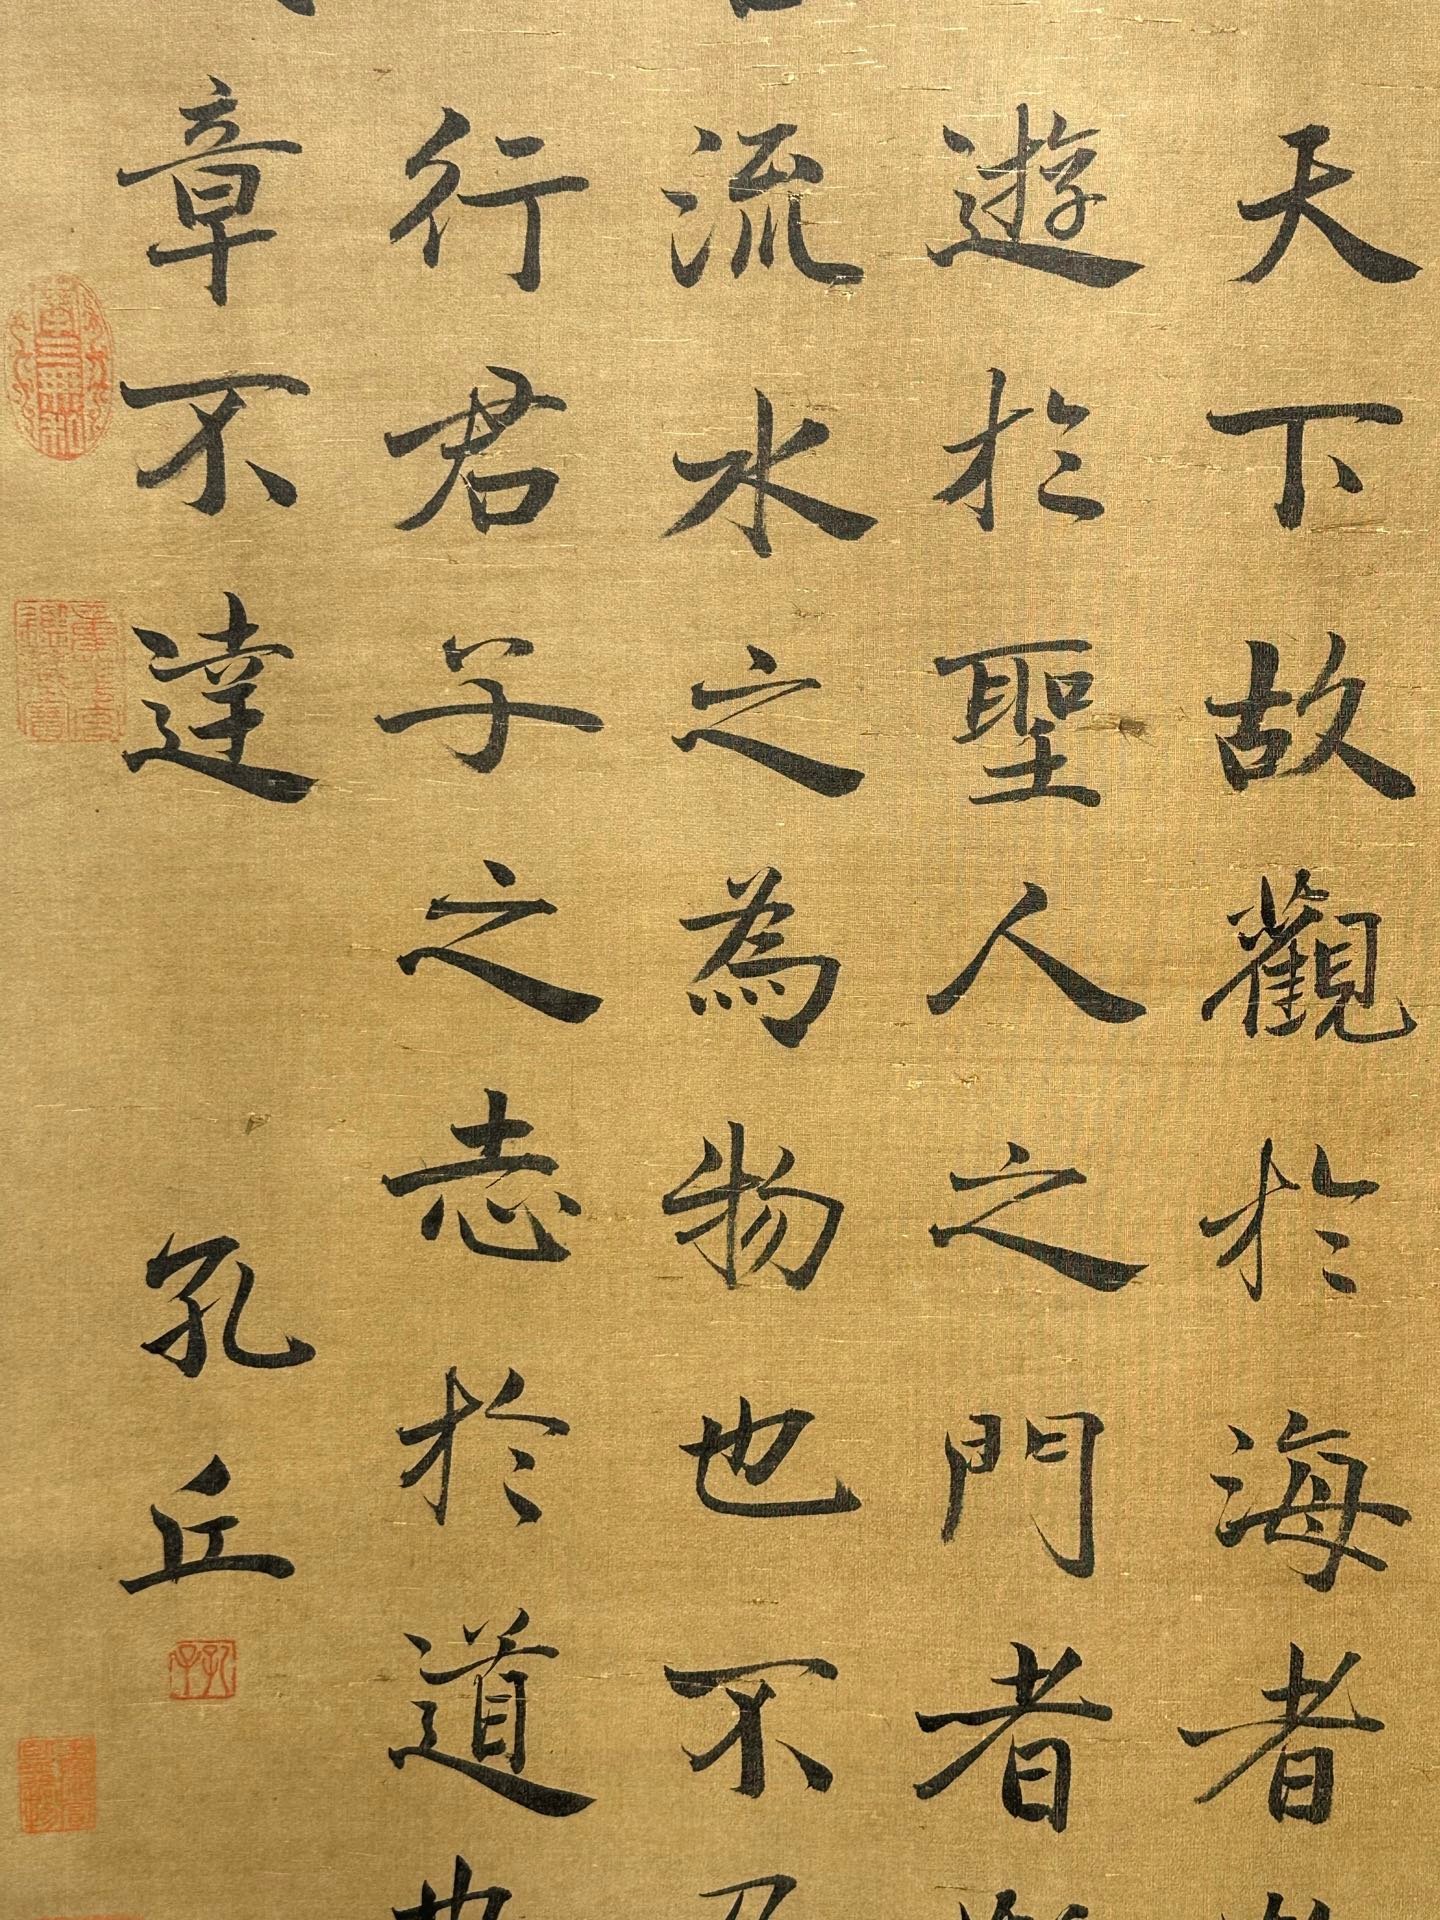 天下故觀於海者
遊於聖人之門者
流水之為物也不
行君子之志於道也
章不達
孔丘
孔子